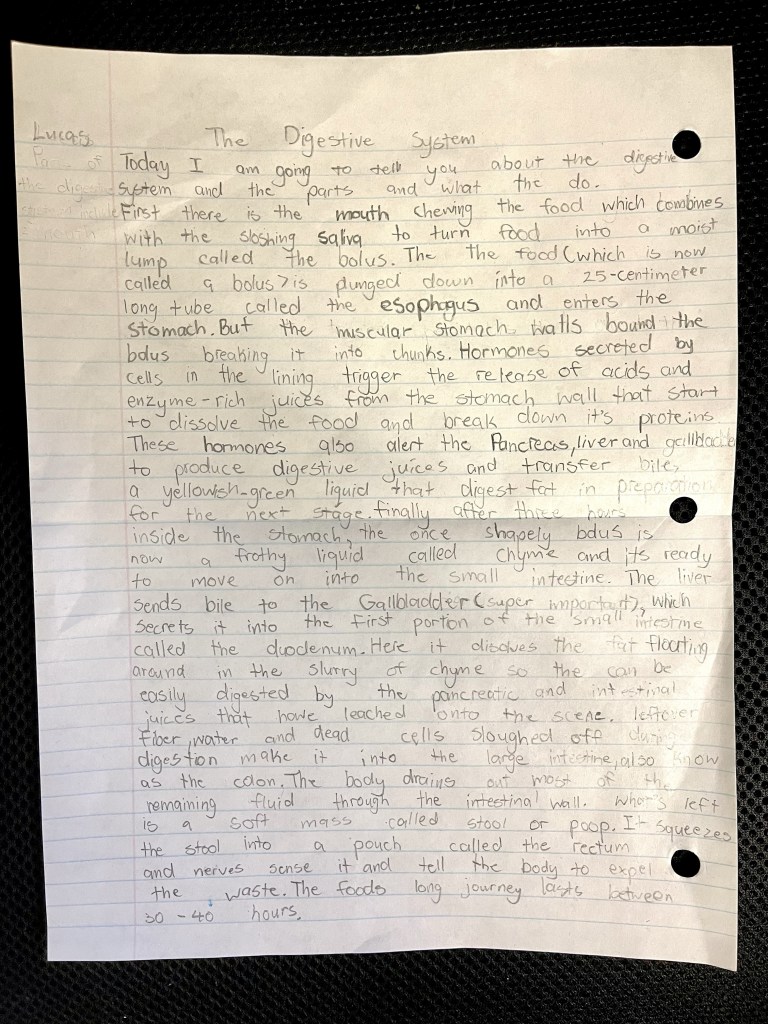 Lucas
The Digestive System
Today I am going to tell you about the digestive
system and the parts and what the do.
First there is the mouth chewing the food which combines
with the sloshing saliva to turn food into a moist
lump called the bolus. The the food (which is now
called a bolus) is plunged down into a 25-centimeter
long tube called the esophagus and enters the
stomach. But the muscular stomach walls bound the
bolus breaking it into chunks. Hormones secreted by
cells in the lining trigger the release of acids and
enzyme-rich juices from the stomach wall that start
to dissolve the food and break down it's proteins
These hormones also alert the Pancreas, liver and gallbladder
to produce digestive juices and transfer bile,
a yellowish-green liquid that digest fat in preparation
for the next stage. finally after three hours
inside the stomach, the once shapely bolus is
now a frothy liquid called chyme and its ready
to move on into the small intestine. The liver
sends bile to the Gallbladder (super important), which
secrets it into the first portion of the small intestine
called the duodenum. Here it disolves the fat floating
around in the slurry of chyme so the can be
easily digested by the pancreatic and intestinal
juices that have leached onto the scene. leftover
Fiber, water and dead cells sloughed off during
digestion make it into the large intestine, also know
as the colon. The body drains out most of the
remaining fluid through the intestinal wall. what's left
is a soft mass called stool or poop. It squeezes
the stool into a pouch called the rectum
and nerves sense it and tell the body to expel
the waste. The foods long journey lasts between
30 - 40 hours.